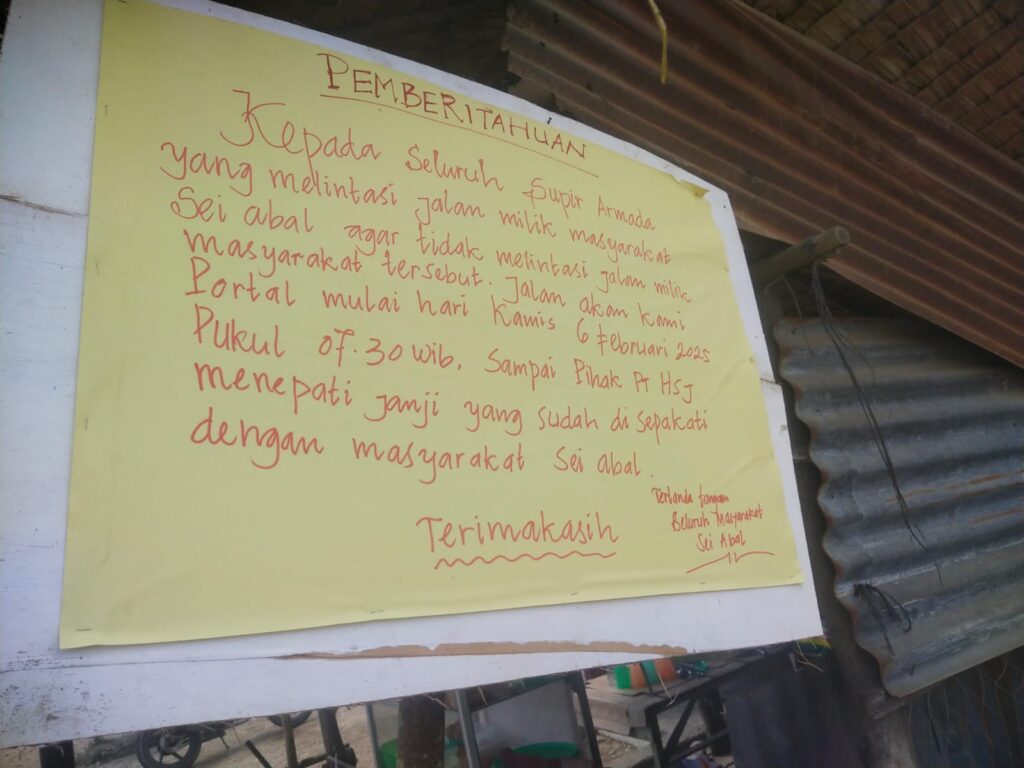 PEMBERITAHUAN
Kepada Seluruh Supir Armada
yang melintasi jalan milik masyarakat
Sei abal agar tidak melintasi jalan milik
masyarakat tersebut. Jalan akan kami
Portal mulai hari Kamis 6 Februari 2025
Pukul 07.30 wib. Sampai Pihak PT HSJ
menepati janji yang sudah di sepakati
dengan masyarakat Sei abal.
Terimakasih
Tertanda tangan
Seluruh Masyarakat
Sei Abal